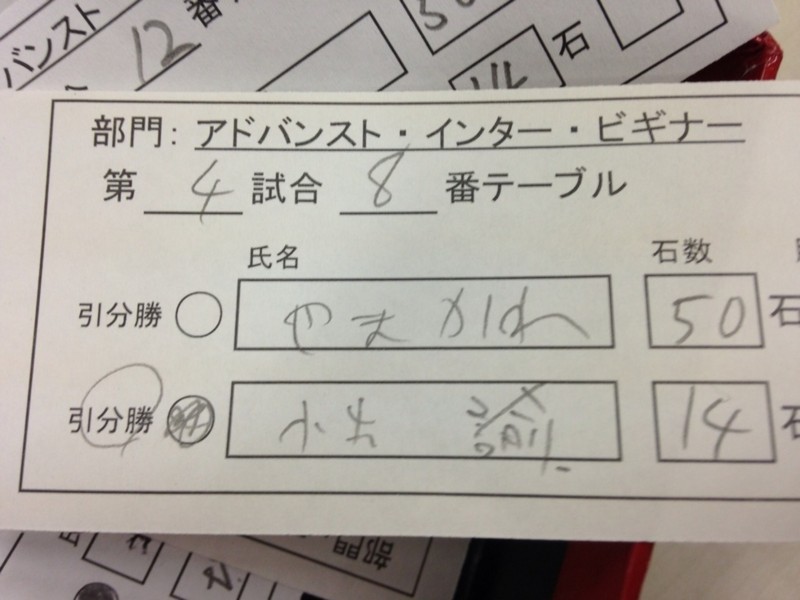 バンスト
12 番
石
部門: アドバンスト・インター・ビギナー
第 4 試合 8 番テーブル
氏名 石数
引分勝 やまかわ 50 石
引分勝 14 石
部門